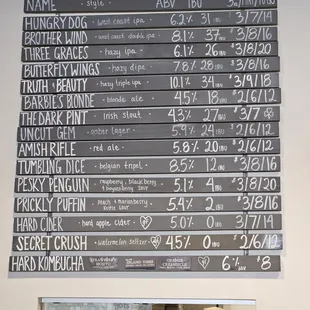 NAME - style - ABV IBU
HUNGRY DOG - west coast ipa 6.2% 31 IBU $3/7/14
BROTHER WIND - west coast double ipa 8.1% 37 IBU $3/8/16
THREE GRACES - hazy ipa 6.1% 26 IBU $3/8/20
BUTTERFLY WINGS - hazy dipa 7.8% 28 IBU $3/8/16
TRUTH & BEAUTY - hazy triple ipa 10.1% 34 IBU $3/9/18
BARBIES BLONDE - blonde ale 4.5% 18 IBU $2/6/12
THE DARK PINT - irish stout 4.3% 27 IBU $3/7
UNCUT GEM - amber lager 5.9% 24 IBU $2/6/12
AMISH RIFLE - red ale - 5.8% 20 IBU $2/6/12
TUMBLING DICE - belgian tripel 8.5% 12 IBU $3/8/16
PESKY PENGUIN - raspberry, black berry & boysenberry sour 5.1% 4 IBU $3/8/20
PRICKLY PUFFIN - peach & marionberry sour 5.4% 2 IBU $3/8/16
HARD CIDER - hard apple cider - 5.0% 0 IBU $3/7/14
SECRET CRUSH - watermelon seltzer 4.5% 0 IBU $2/6/12
HARD KOMBUCHA 6% $8